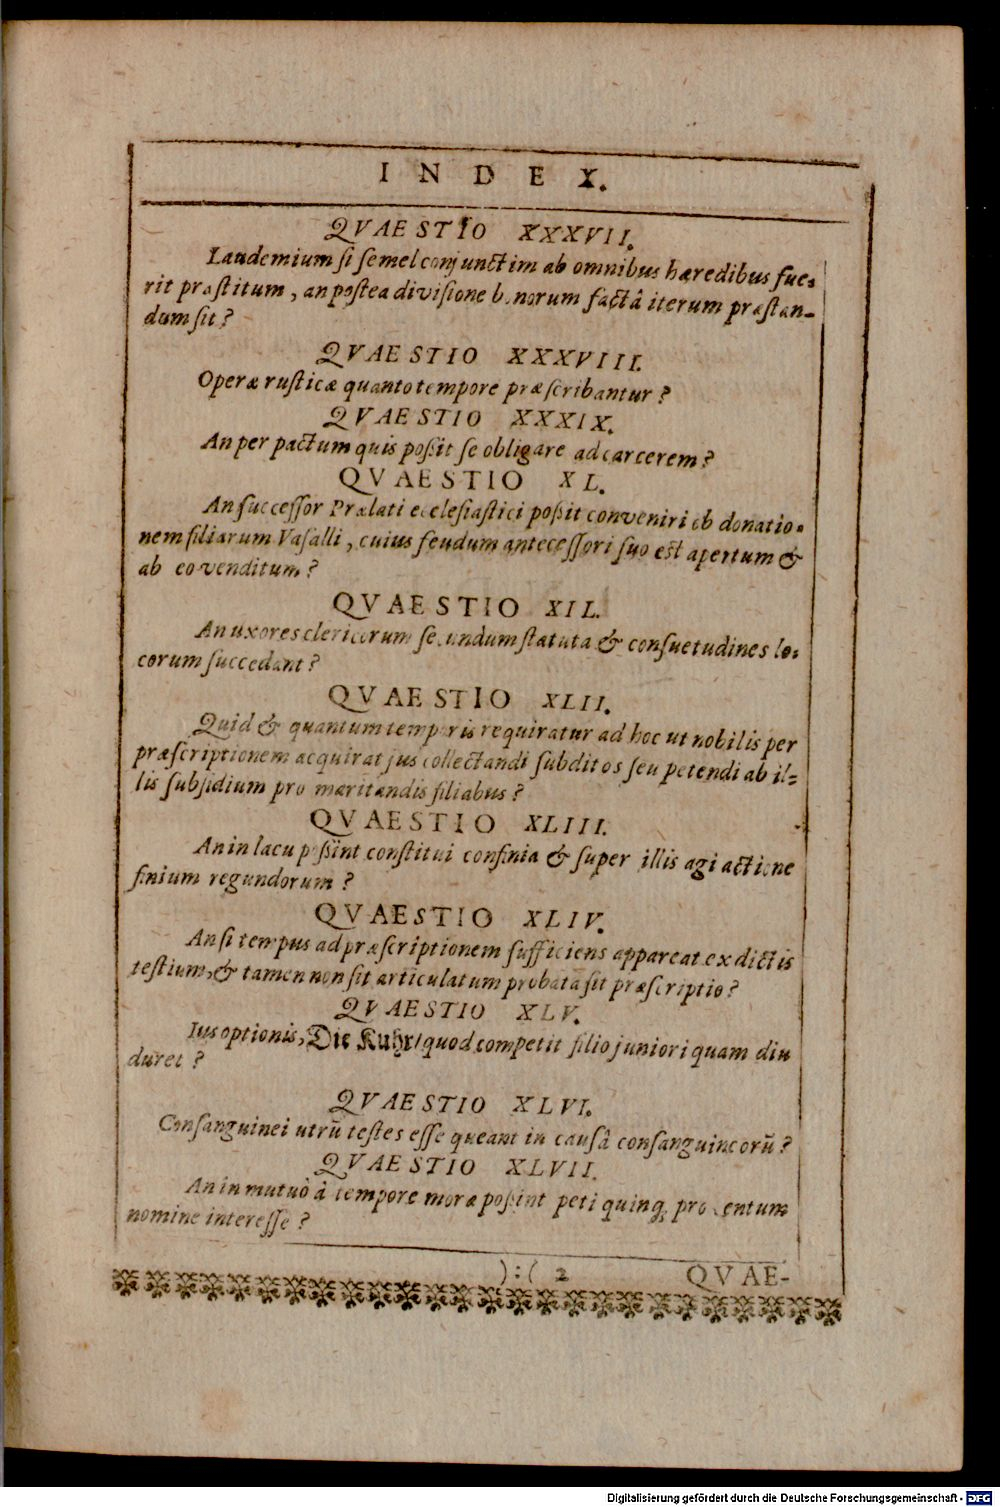 INDEX.
QVAESTIO XXXVII.
Laudemium si semel conjunctim ab omnibus hæredibus fue-
rit præstitum, an postea divisione bonorum factâ iterum præstan-
dum sit?
QVAESTIO XXXVIII.
Operæ rusticæ quanto tempore præscribantur?
QVAESTIO XXXIX.
An per pactum quis poßit se obligare ad carcerem?
QVAESTIO XL.
An successor Prælati ecclesiastici poßit conveniri ob donatio-
nem filiarum Vasalli, cuius feudum antecessori suo est apertum &
ab eo venditum?
QVAESTIO XIL.
An uxores clericorum secundum statuta & consuetudines lo-
corum succedant?
QVAESTIO XLII.
Quid & quantum temporis requiratur ad hoc ut nobilis per
præscriptionem acquirat jus collectandi subditos seu petendi ab il-
lis subsidium pro maritandis filiabus?
QVAESTIO XLIII.
An in lacu poßint constitui confinia & super illis agi actione
finium regundorum?
QVAESTIO XLIV.
An si tempus ad præscriptionem sufficiens appareat ex dictis
testium, & tamen non sit articulatum probata sit præscriptio?
QVAESTIO XLV.
Ius optionis, Die Kuhr/ quod competit filio juniori quam diu
duret?
QVAESTIO XLVI.
Consanguinei utrū testes esse queant in causâ consanguineorū?
QVAESTIO XLVII.
An in mutuò à tempore moræ poßint peti quinq; pro centum
nomine interesse?
):( 2 QVAE-
Digitalisierung gefördert durch die Deutsche Forschungsgemeinschaft - DFG